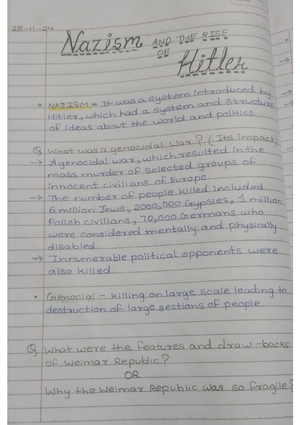 25-11-24
Nazism AND THE RISE
OF
Hitler
• NAZISM → It was a system introduced by
Hitler, which had a system and structure
of ideas about the world and politics
Q What was a genocidal war? (Its Impact)
→ A genocidal war, which resulted in the
mass murder of selected groups of
innocent civilians of Europe
→ The number of people killed included
6 million Jews, 2000,000 Gypsies, 1 million
Polish civilians, 70,000 Germans who
were considered mentally and physically
disabled.
→ Innumerable political opponents were
also killed.
• Genocial - killing on large scale leading to
destruction of large sections of people.
Q What were the features and draw-backs
of Weimar Republic?
OR
Why the Weimar Republic was so fragile?